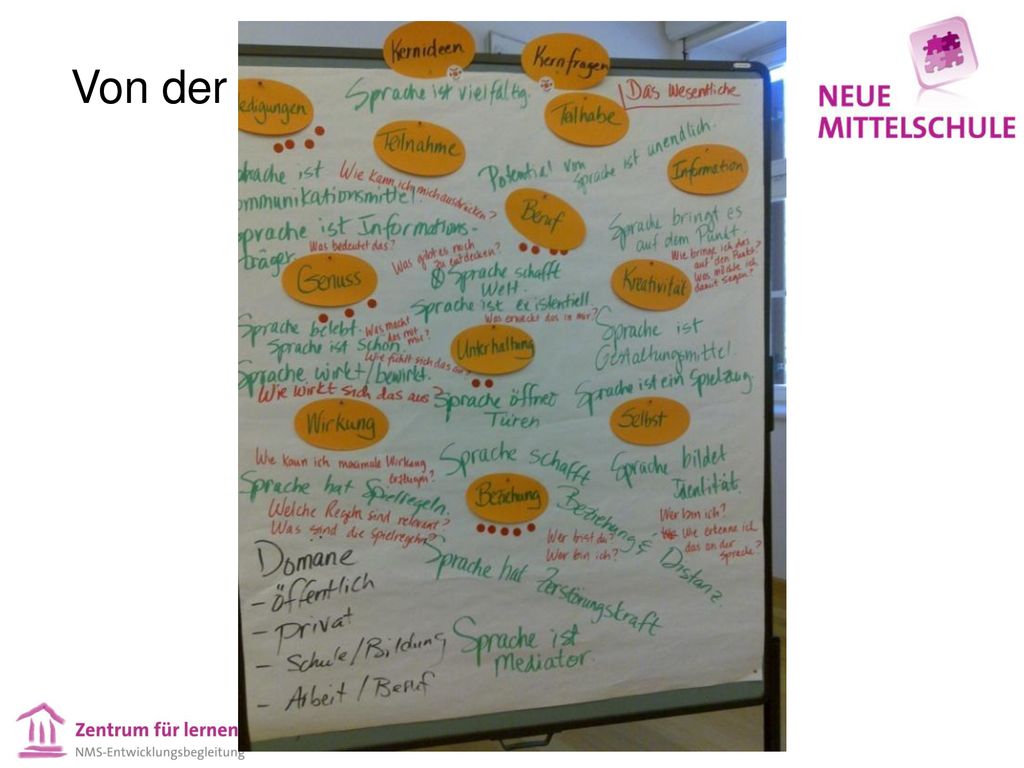 Von der
NEUE
MITTELSCHULE
Kernideen
Kernfragen
Das Wesentliche
edigungen
Sprache ist vielfältig.
Teilhabe
Teilnahme
Potential von
Sprache ist unendlich.
Information
prache ist
ommunikationsmittel.
Wie kann ich mich ausdrücken?
Beruf
Sprache bringt es
auf dem Punkt.
Wie bringe ich das
auf den Punkt?
Was möchte ich
damit sagen?
Sprache ist Informations-
träger.
Was bedeutet das?
Was gibt es noch
zu entdecken?
Genuss
Sprache schafft
Welt.
Kreativität
Sprache ist existentiell.
Was erweckt das in mir?
Sprache belebt.
Was macht
das mit
mir?
Sprache ist schön.
Wie fühlt sich das an?
Unterhaltung
Sprache ist
Gestaltungsmittel.
Sprache wirkt/bewirkt.
Wie wirkt sich das aus?
Sprache öffnet
Türen
Sprache ist ein Spielzeug.
Wirkung
Selbst
Wie kann ich maximale Wirkung
erzeugen?
Sprache schafft
Beziehung &
Distanz.
Sprache bildet
Identität.
Sprache hat Spielregeln.
Beziehung
Welche Regeln sind relevant?
Was sind die Spielregeln?
Wer bist du?
Wer bin ich?
Wer bin ich?
Wie erkenne ich
das an der
Sprache?
Domäne
- öffentlich
- privat
- Schule/Bildung
- Arbeit/Beruf
Sprache hat Zerstörungskraft
Sprache ist
Mediator.
Zentrum für lernen
NMS-Entwicklungsbegleitung